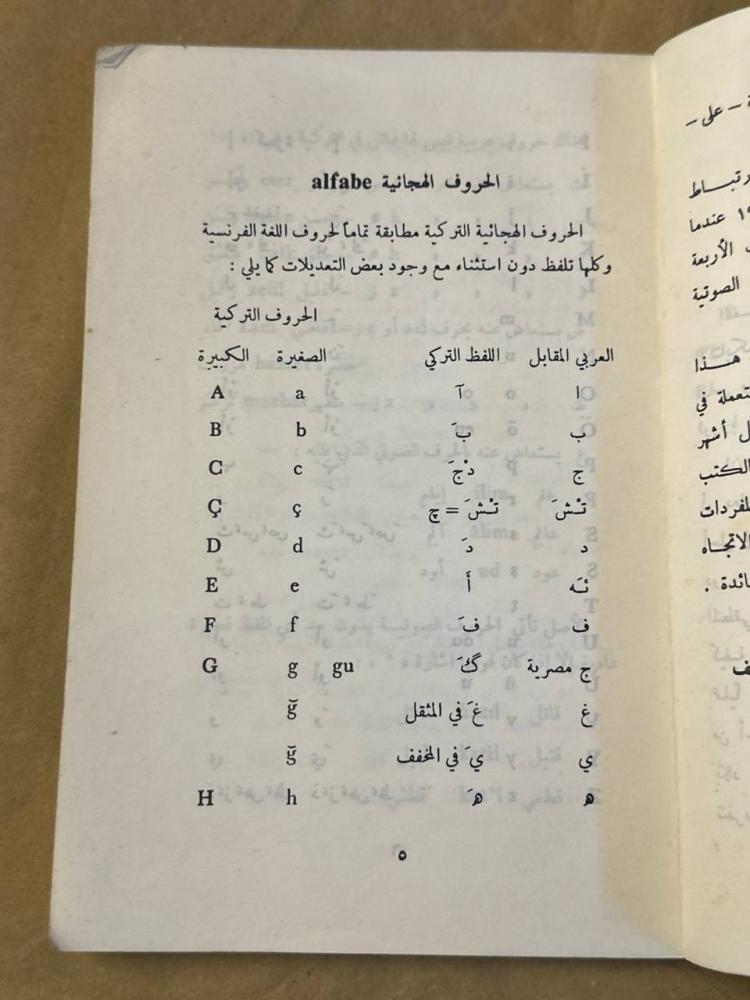 الحروف الهجائية alfabe
الحروف الهجائية التركية مطابقة تماماً لحروف اللغة الفرنسية
وكلها تلفظ دون استثناء مع وجود بعض التعديلات كما يلي :
الحروف التركية
العربي المقابل اللفظ التركي الصغيرة الكبيرة
ا آ a A
ب بَ b B
ج دْجَ c C
تْشَ تْشَ = چ ç Ç
د دَ d D
ئه أَ e E
ف فَ f F
ج مصرية گَ gu g G
غ غَ في المثقل ğ
ي يَ في المخفف ğ
ه هَ h H
٥
ة – على –
رتباط
عندما
الأربعة
الصوتية
هذا
تعملة في
ل أشهر
الكتب
لمفردات
الاتجاه
ائدة .